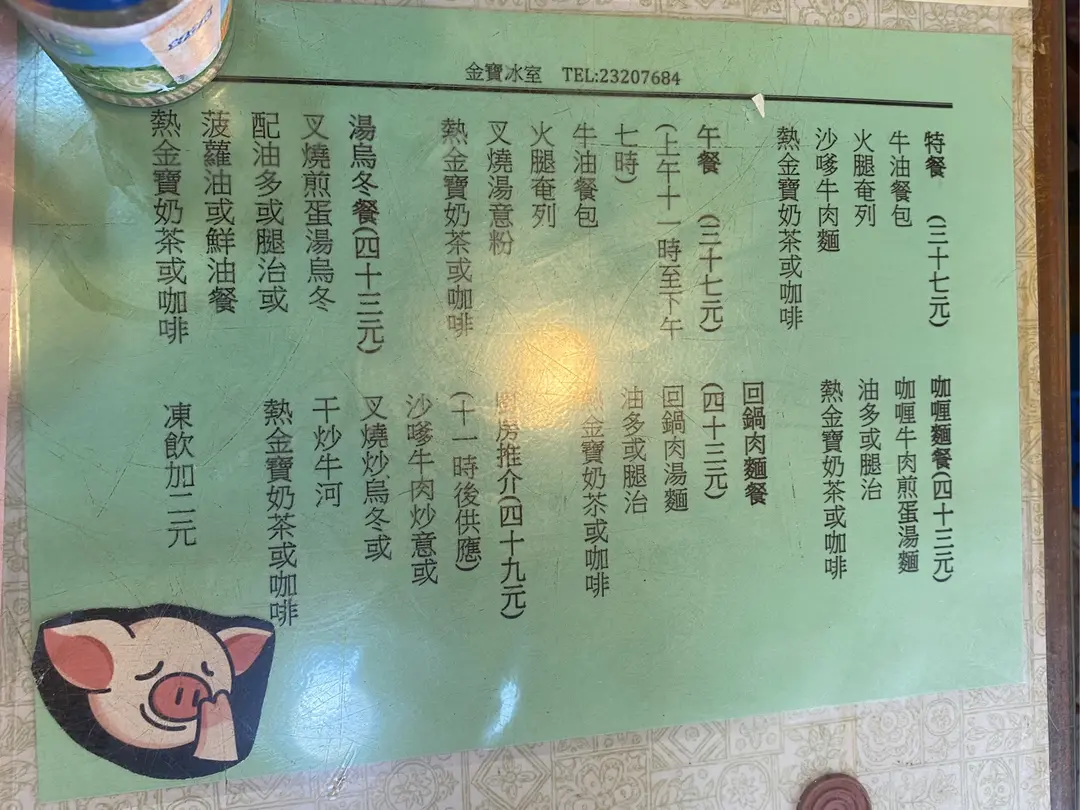 金寶冰室 TEL:23207684
特餐 (三十七元)
牛油餐包
火腿奄列
沙嗲牛肉麵
熱金寶奶茶或咖啡
午餐 (三十七元)
(上午十一時至下午
七時)
牛油餐包
火腿奄列
叉燒湯意粉
熱金寶奶茶或咖啡
湯烏冬餐(四十三元)
叉燒煎蛋湯烏冬
配油多或腿治或
菠蘿油或鮮油餐
熱金寶奶茶或咖啡
咖喱麵餐(四十三元)
咖喱牛肉煎蛋湯麵
油多或腿治
熱金寶奶茶或咖啡
回鍋肉麵餐
(四十三元)
回鍋肉湯麵
油多或腿治
熱金寶奶茶或咖啡
房推介(四十九元)
(十一時後供應)
沙嗲牛肉炒意或
叉燒炒烏冬或
干炒牛河
熱金寶奶茶或咖啡
凍飲加二元